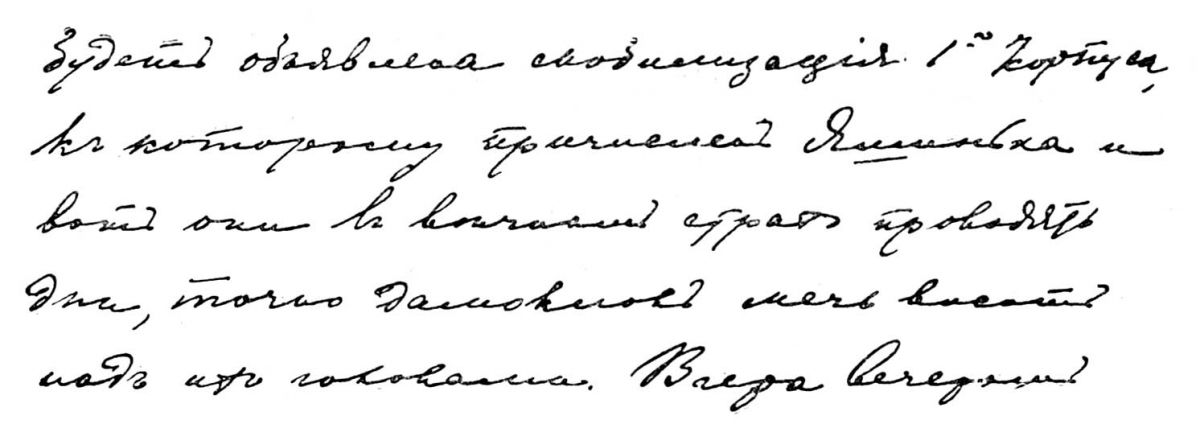 будетъ объявлена мобилизація 1го Корпуса,
къ которому причисленъ Яшинька и
вотъ они въ вѣчномъ страхѣ проводятъ
дни, точно дамокловъ мечъ виситъ
надъ ихъ головами. Вчера вечеромъ